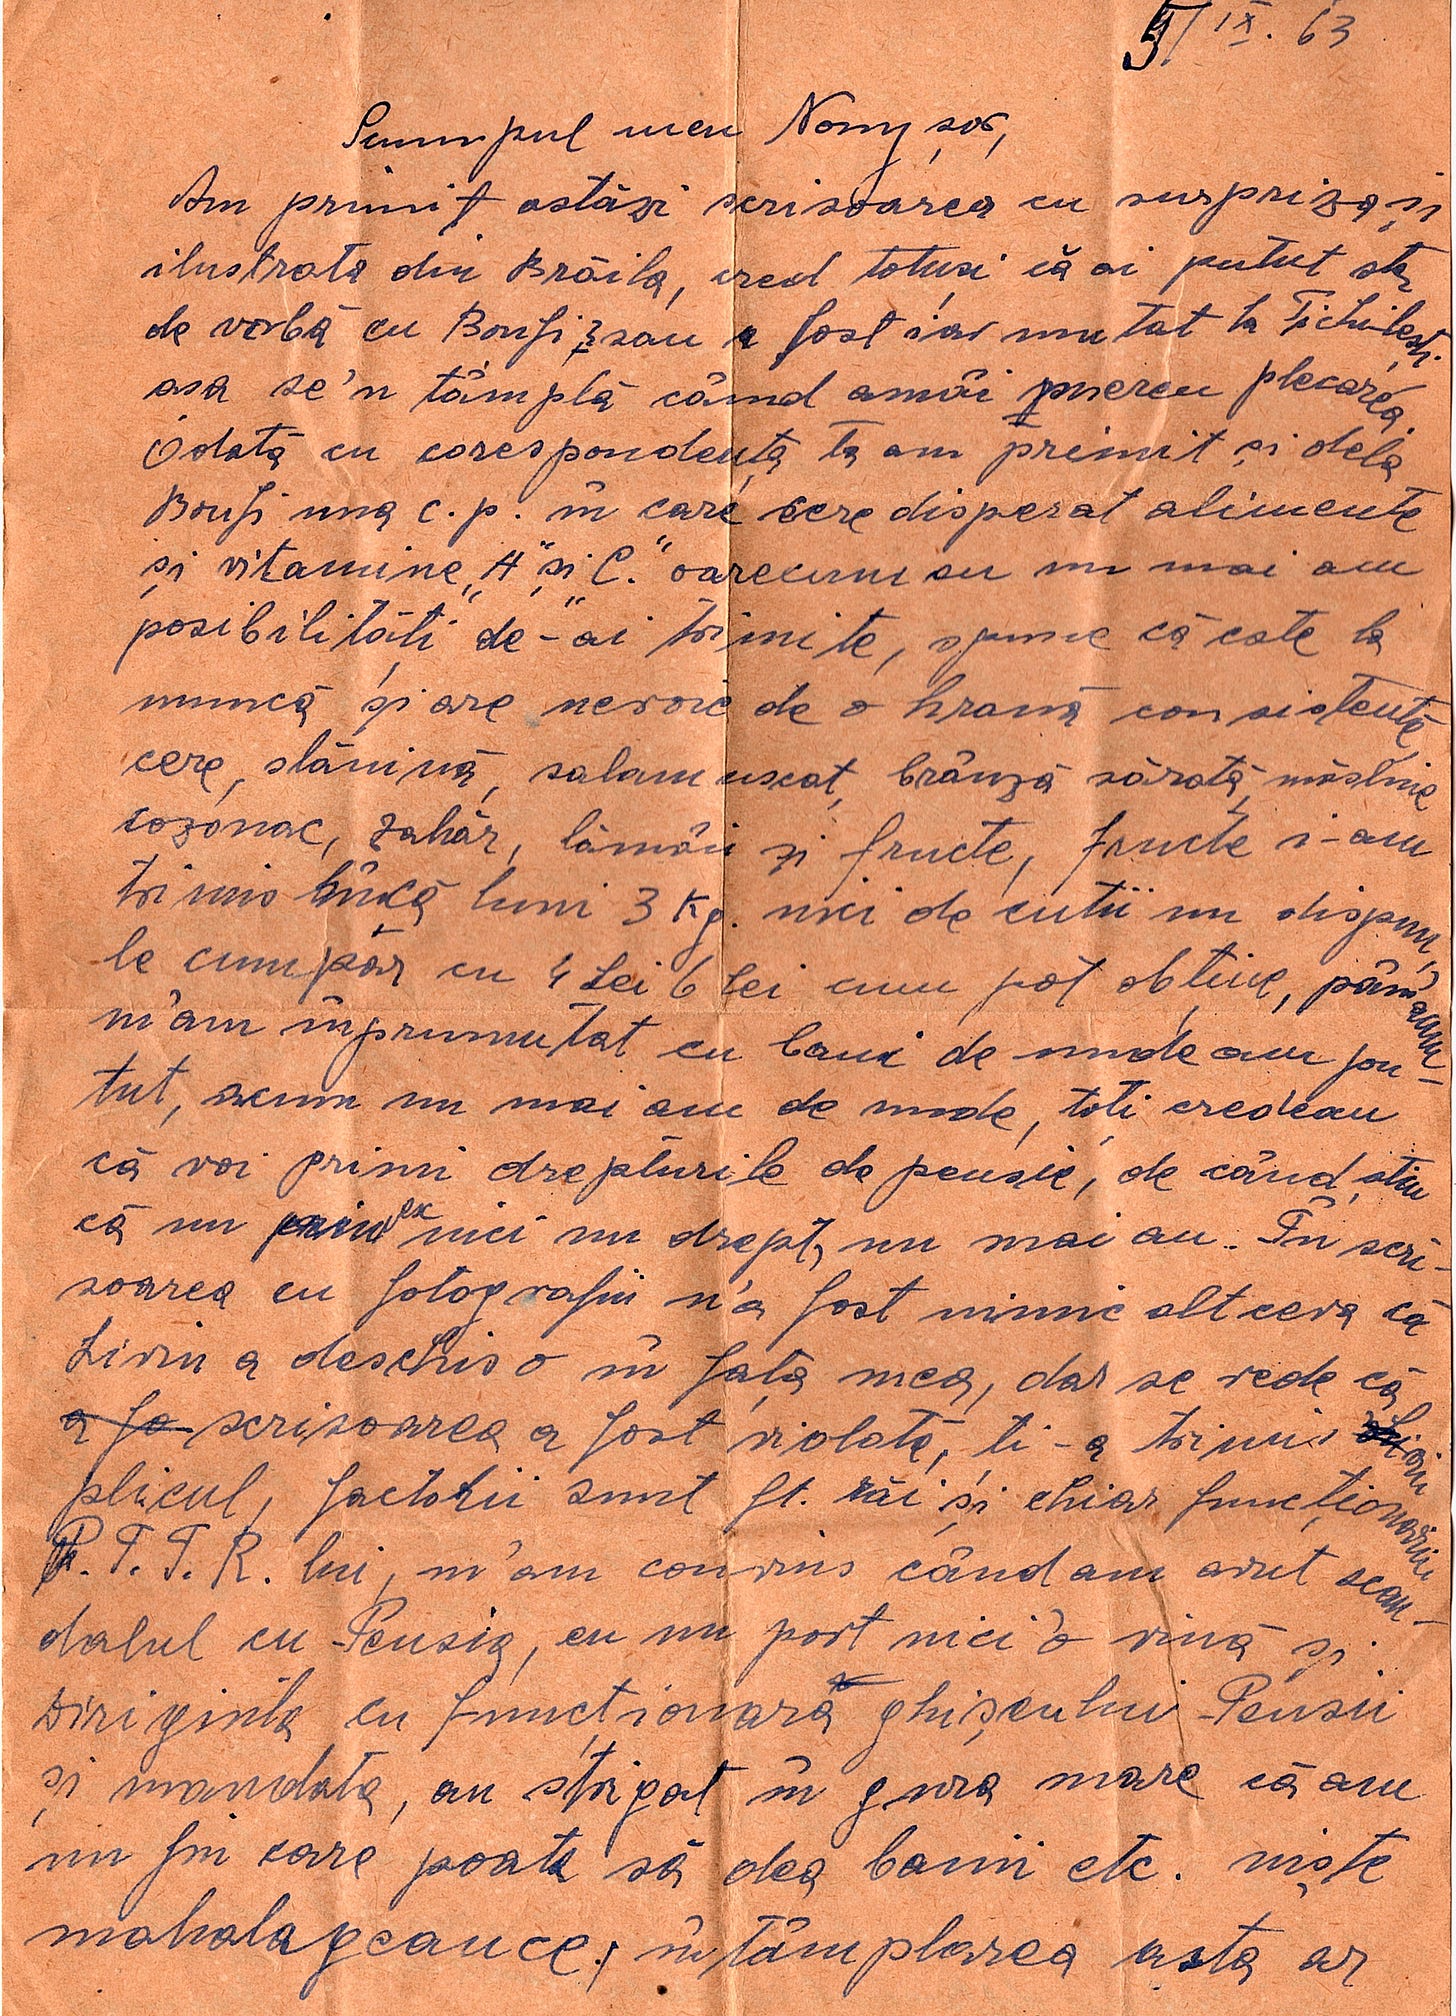 5/IX. 63
Scumpul meu Nonyșor,
Am primit astăzi scrisoarea cu surpriza și
ilustrata din Brăila, cred totuși că ai putut sta
de vorbă cu Boufi, sau a fost iar mutat la Tichilești
așa se'n tâmplă când amâi mereu plecarea.
Odată cu corespondența ta am primit și dela
Boufi una c. p. în care cere disperat alimente
și vitamine „A" și „C." oarecum eu nu mai am
posibilități de-ai trimite, spune că este la
muncă și are nevoie de o hrană consistentă,
cere, slănină, salam uscat, brânză sărată, măsline
cozonac, zahăr, lămâi și fructe, fructe i-am
trimis încă luni 3 Kg. nici de cutii nu dispun,
le cumpăr cu 4 Lei 6 lei cum pot obține, până acum
m'am înprumutat cu bani de unde am pu-
tut, acum nu mai am de unde, toți credeau
că voi primi drepturile de pensie, de când știu
că nu nici nu drept, nu mai au. În scri-
soarea cu fotografii n'a fost nimic altceva că
Liviu a deschis o în fața mea, dar se vede că
a fo scrisoarea a fost violată, ți-a trimis Liviu
plicul, factorii sunt ft. răi și chiar funcționarii
P. T. T. R. lui, m'am convins când am avut scan-
dalul cu Pensia, eu nu port nici'o vină și
Diriginta cu funcționara ghișeului Pensii
și mandata, au strigat în gura mare că am
un fiu care poate să dea banii etc. niște
mahalageauce, întâmplarea asta ar